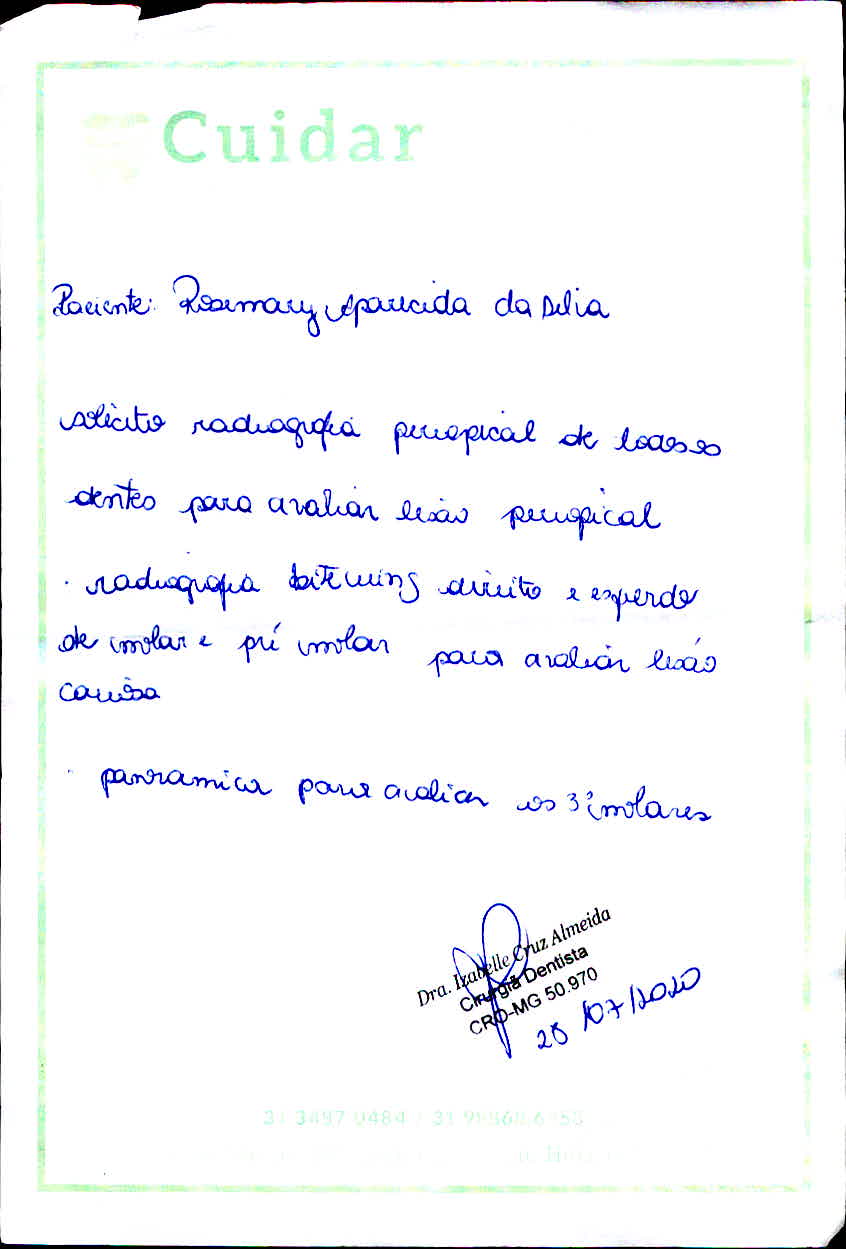 Cuidar
Paciente: Rosemary Aparecida da Silva
solicito radiografia periapical de todos os
dentes para avaliar lesão periapical
· radiografia bitewing direito e esquerdo
de molar e pré molar para avaliar lesão
cariosa
· panoramica para avaliar os 3º molares
Dra. Izabelle Cruz Almeida
Cirurgiã Dentista
CRO-MG 50.970
28/07/2020